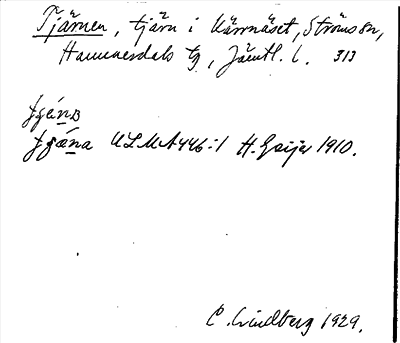 Tjärnen, tjärn i Kärrnäset, Ströms sn,
Hammerdals tg, Jämtl. l. 313
ULMA 446:1 H. Geijer 1910.
C. Lindberg 1929.